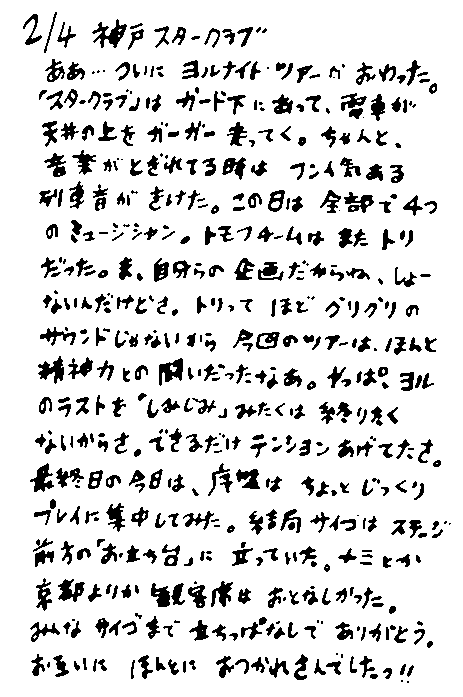 2/4 神戸スタークラブ
ああ…ついに ヨルナイト・ツアーが おわった。
「スタークラブ」は ガード下にあって、電車が
天井の上を ガーガー 走ってく。ちゃんと、
音楽がとぎれてる時は フンイ気ある
列車音が きけた。この日は 全部で4つ
のミュージシャン。トモフチームは また トリ
だった。ま、自分らの 企画だからね、しょー
ないんだけどさ。トリって ほど グリグリの
サウンドじゃないから 今回のツアーは、ほんと
精神力との 闘いだったなあ。やっぱ、ヨル
のラストを「しみじみ」みたくは 終りたく
ないからさ。できるだけ テンション あげてたさ。
最終日の今日は、序盤は ちょっと じっくり
プレイに集中してみた。結局 サイゴは ステージ
前方の「お立ち台」に 立っていた。ナミとか
京都よりか 観客席は おとなしかった。
みんな サイゴまで 立ちっぱなしで ありがとう。
お互いに ほんとに おつかれさんでしたっ!!